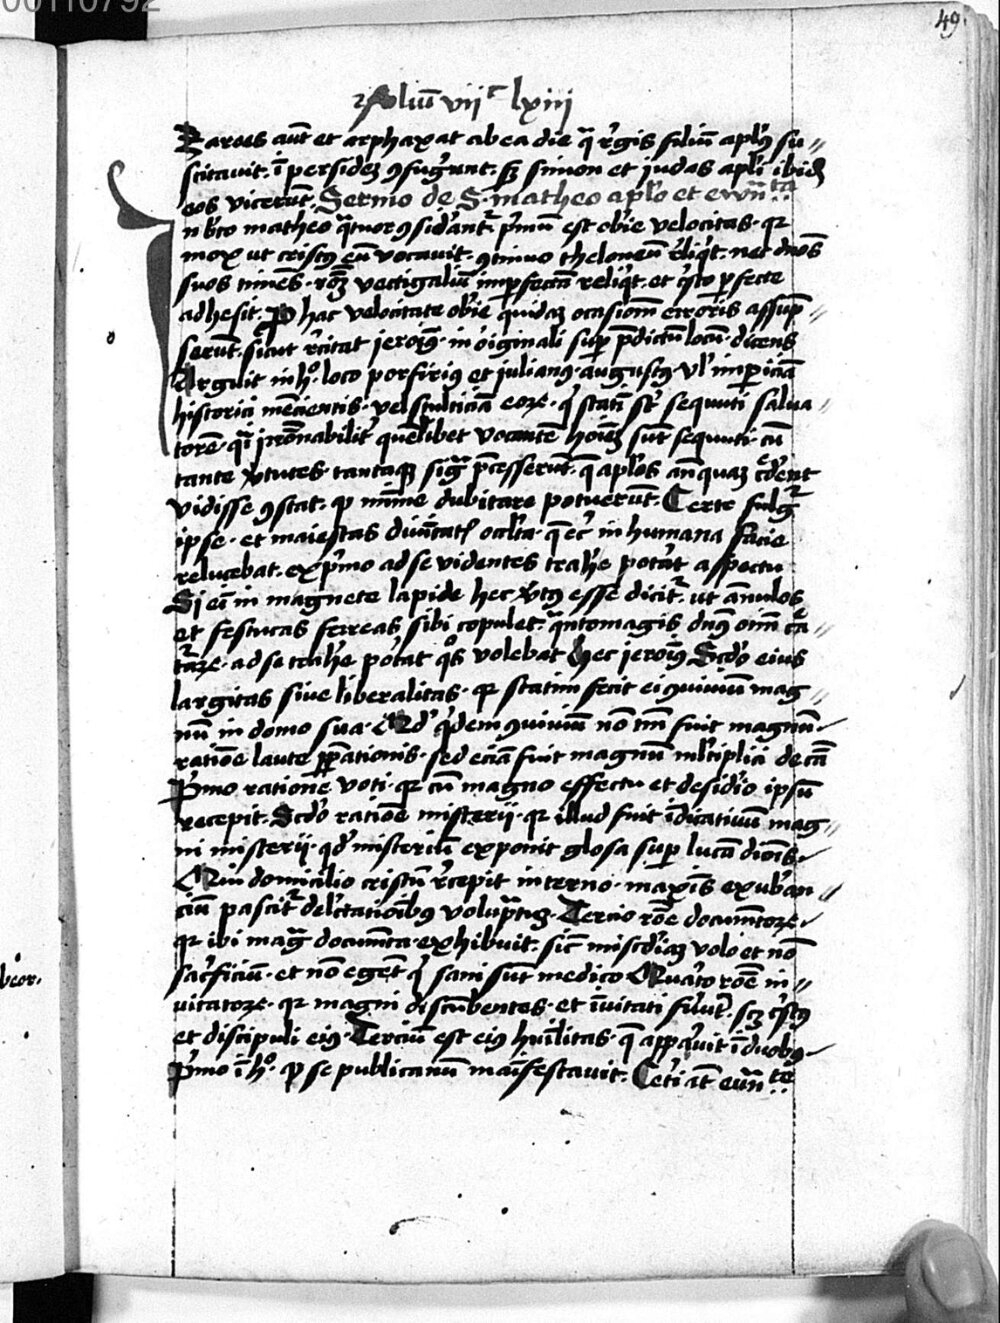 00110792
49
folium viic lxiii
Zaroes aut et arphaxat ab ea die q regis filium aplus su
scitavit. i persidem 9fugerunt. s simon et judas apli ibidem
eos vicerunt. Sermo de S. matheo aplo et ewangta
n bto matheo quatuor 9siderantr primum est obie velocitas. qr
mox ut cristus eum vocavit. 9tinuo theloneum reliqt. nec dnos
suos timens. rones vectigalium imperfectas reliqt. et cristo perfecte
adhesit. P hac velocitate obie quidam occasionem erroris assump
serunt. sicut recitat jeronimus. in originali super predictum locum. dicens
Arguit in ho. loco porfirius et julianus. augustus. vl impericiam
historici mencientis. vel stulticiam eorum. qui statim st sequuti salva
torem. quasi irronabiliter quemlibet vocantem hoiem sint sequuti. cum
tante virtutes. tantaque signa precesserunt. que aplos antequam crederent
vidisse 9stat. q minime dubitare potuerunt. Certe fulgor
ipse. et maiestas divinitatis occulta. que et in humana facie
relucebat. ex primo ad se videntes trahere poterat aspectu
Si ei in magnete lapide hec virtus esse dicitr. ut annulos
et festucas ferreas sibi copulet. quantomagis dns omnium crea
turarum. ad se trahere poterat quos volebat Hec jeronimus Scdo eius
largitas sive liberalitas. qr statim fecit ei 9vivium mag
num in domo sua. Qd quidem 9vivium non tm fuit magnum.
ratione laute pparationis. sed eciam fuit magnum multiplici de cau
Primo ratione voti. qr cum magno effectu et desiderio ipsum
recepit. Scdo ratione misterii. qr illud fuit indicativum mag
ni misterii. qd misterium exponit glosa super lucam dicens.
Qui domicilio cristum recepit interno. maximis exuberan
cium pascitr delectationibus voluptatum. Tercio rone documentorum.
qr ibi magna documenta exhibuit. sic misericordiam volo et non
sacrificium. et non egent qui sani sunt medico Quarto rone in
vitatorum. qr magni discumbentes. et invitati fuerunt. scz cristus
et discipuli eius. Tercium est eius humilitas. que apparuit in duobus
Primo in ho. q se publicanum manifestavit. Ceteri at evangte
beor.